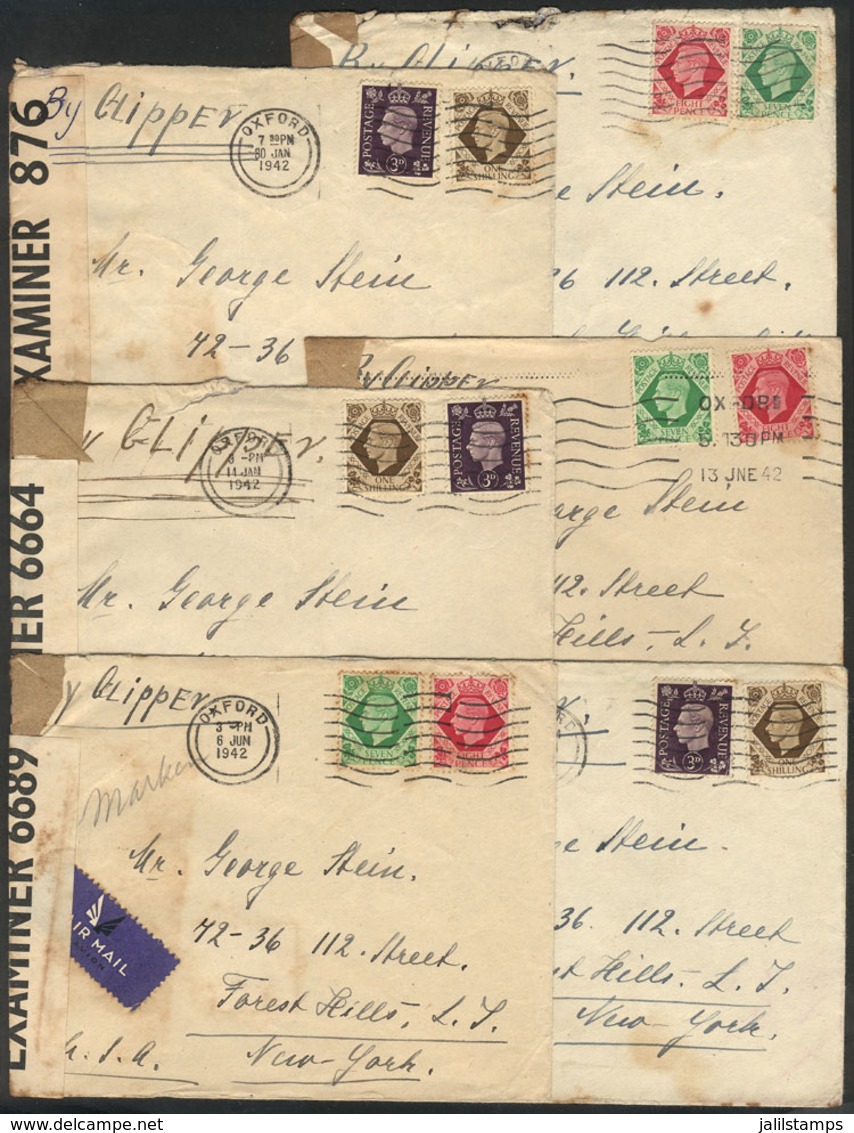 By Clipper
OXFORD
7 30PM
30 JAN
1942
POSTAGE REVENUE
3D
ONE SHILLING
EXAMINER 876
Mr. George Stein
42-36
By Clipper.
EIGHT PENCE
SEVEN PENCE
Stein.
112. Street.
Clipper.
OXFORD
-PM
11 JAN
1942
ONE SHILLING
POSTAGE REVENUE
3D
6664
Mr. George Stein
By Clipper
SEVEN
EIGHT
OXFORD
5.130PM
13 JNE 42
Stein
112. Street
Hills, L. I.
Clipper
OXFORD
3 -PM
6 JUN
1942
SEVEN PENCE
PENCE
EXAMINER 6689
AIR MAIL
Mr. George Stein.
42-36 112. Street.
Forest Hills, L. I.
New-York.
U.S.A.
POSTAGE REVENUE
3D
ONE SHILLING
Stein.
36. 112. Street
Hills, L. I.
New-York.
jalilstamps